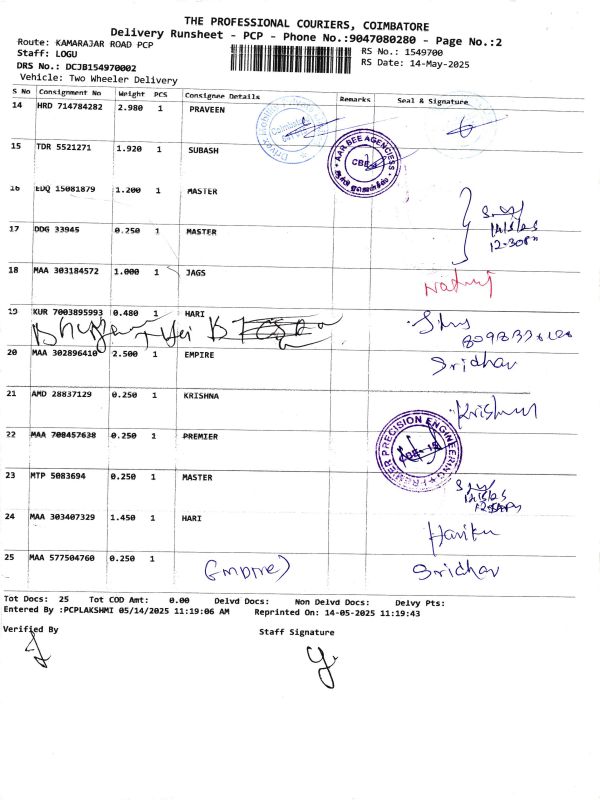 THE PROFESSIONAL COURIERS, COIMBATORE
Delivery Runsheet - PCP - Phone No.:9047080280 - Page No.:2
Route: KAMARAJAR ROAD PCP
RS No.: 1549700
Staff: LOGU
RS Date: 14-May-2025
DRS No.: DCJB154970002
Vehicle: Two Wheeler Delivery
S No Consignment No Weight PCS Consignee Details Remarks Seal & Signature
14 HRD 714784282 2.980 1 PRAVEEN
15 TDR 5521271 1.920 1 SUBASH
AAR BEE AGENCIESS
CBE
16 EDQ 15081879 1.200 1 MASTER
14/5/25
12.30PM
17 DDG 33945 0.250 1 MASTER
18 MAA 303184572 1.000 1 JAGS
19 KUR 7003895993 0.480 1 HARI
20 MAA 302896410 2.500 1 EMPIRE Sridhar
21 AMD 28837129 0.250 1 KRISHNA
22 MAA 708457638 0.250 1 PREMIER
PREMIER PRECISION ENGINEERING
CBE - 15
23 MTP 5083694 0.250 1 MASTER
14/5/25
24 MAA 303407329 1.450 1 HARI
25 MAA 577504760 0.250 1 (Empire) Sridhar
Tot Docs: 25 Tot COD Amt: 0.00 Delvd Docs: Non Delvd Docs: Delvy Pts:
Entered By :PCPLAKSHMI 05/14/2025 11:19:06 AM Reprinted On: 14-05-2025 11:19:43
Verified By
Staff Signature